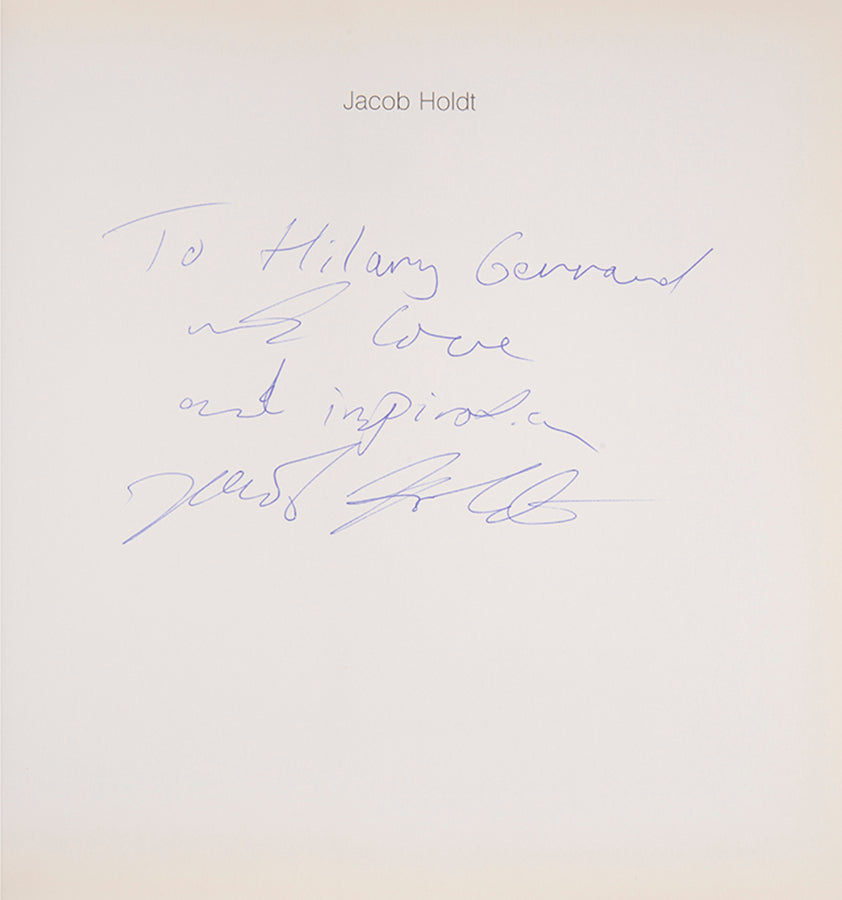 Jacob Holdt
To Hilary Gerrand
with love
and inspiration
Jacob Holdt